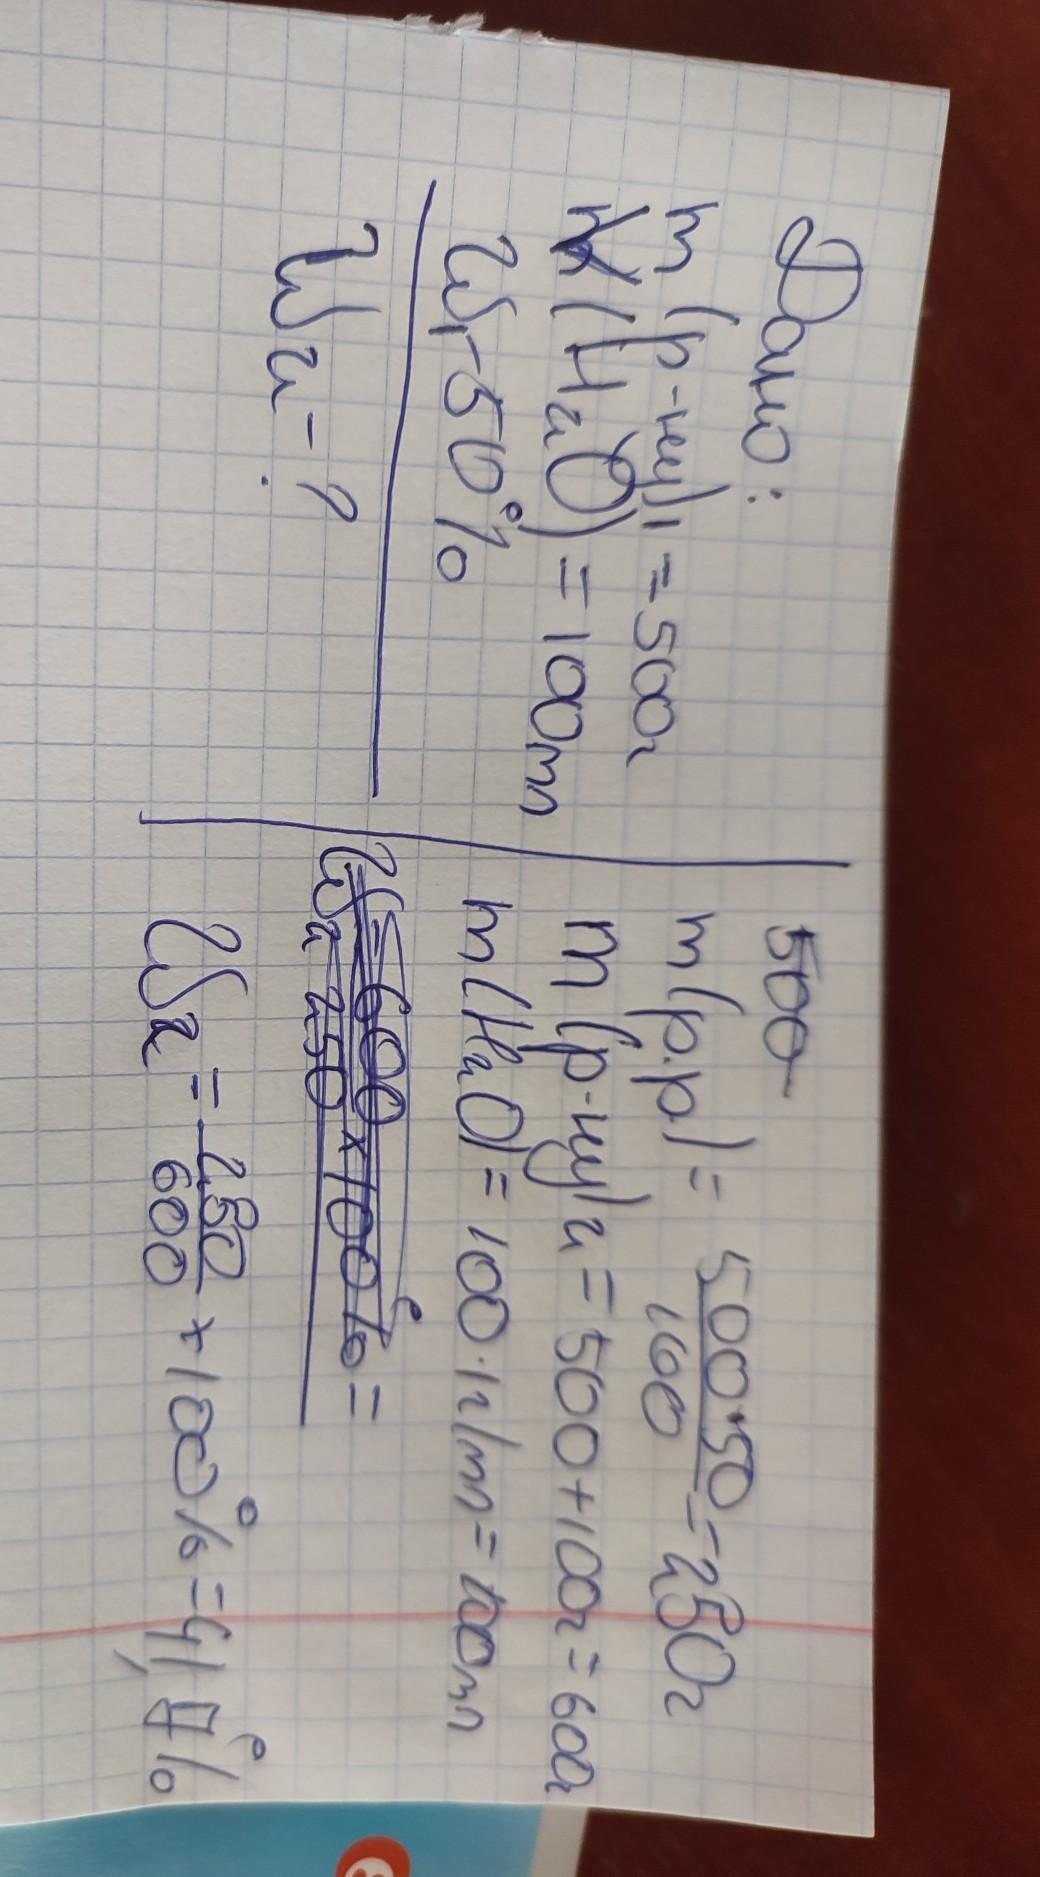 Дано:
m(р-ну)1 = 500г
V(H2O) = 100мл
W1 - 50%
W2 - ?
500
m(р.р) = 500·50/100 = 250г
m(р-ну)2 = 500+100г = 600г
m(H2O) = 100·1г/мл = 100мл
W2 = 250/600 × 100% = 41,7%